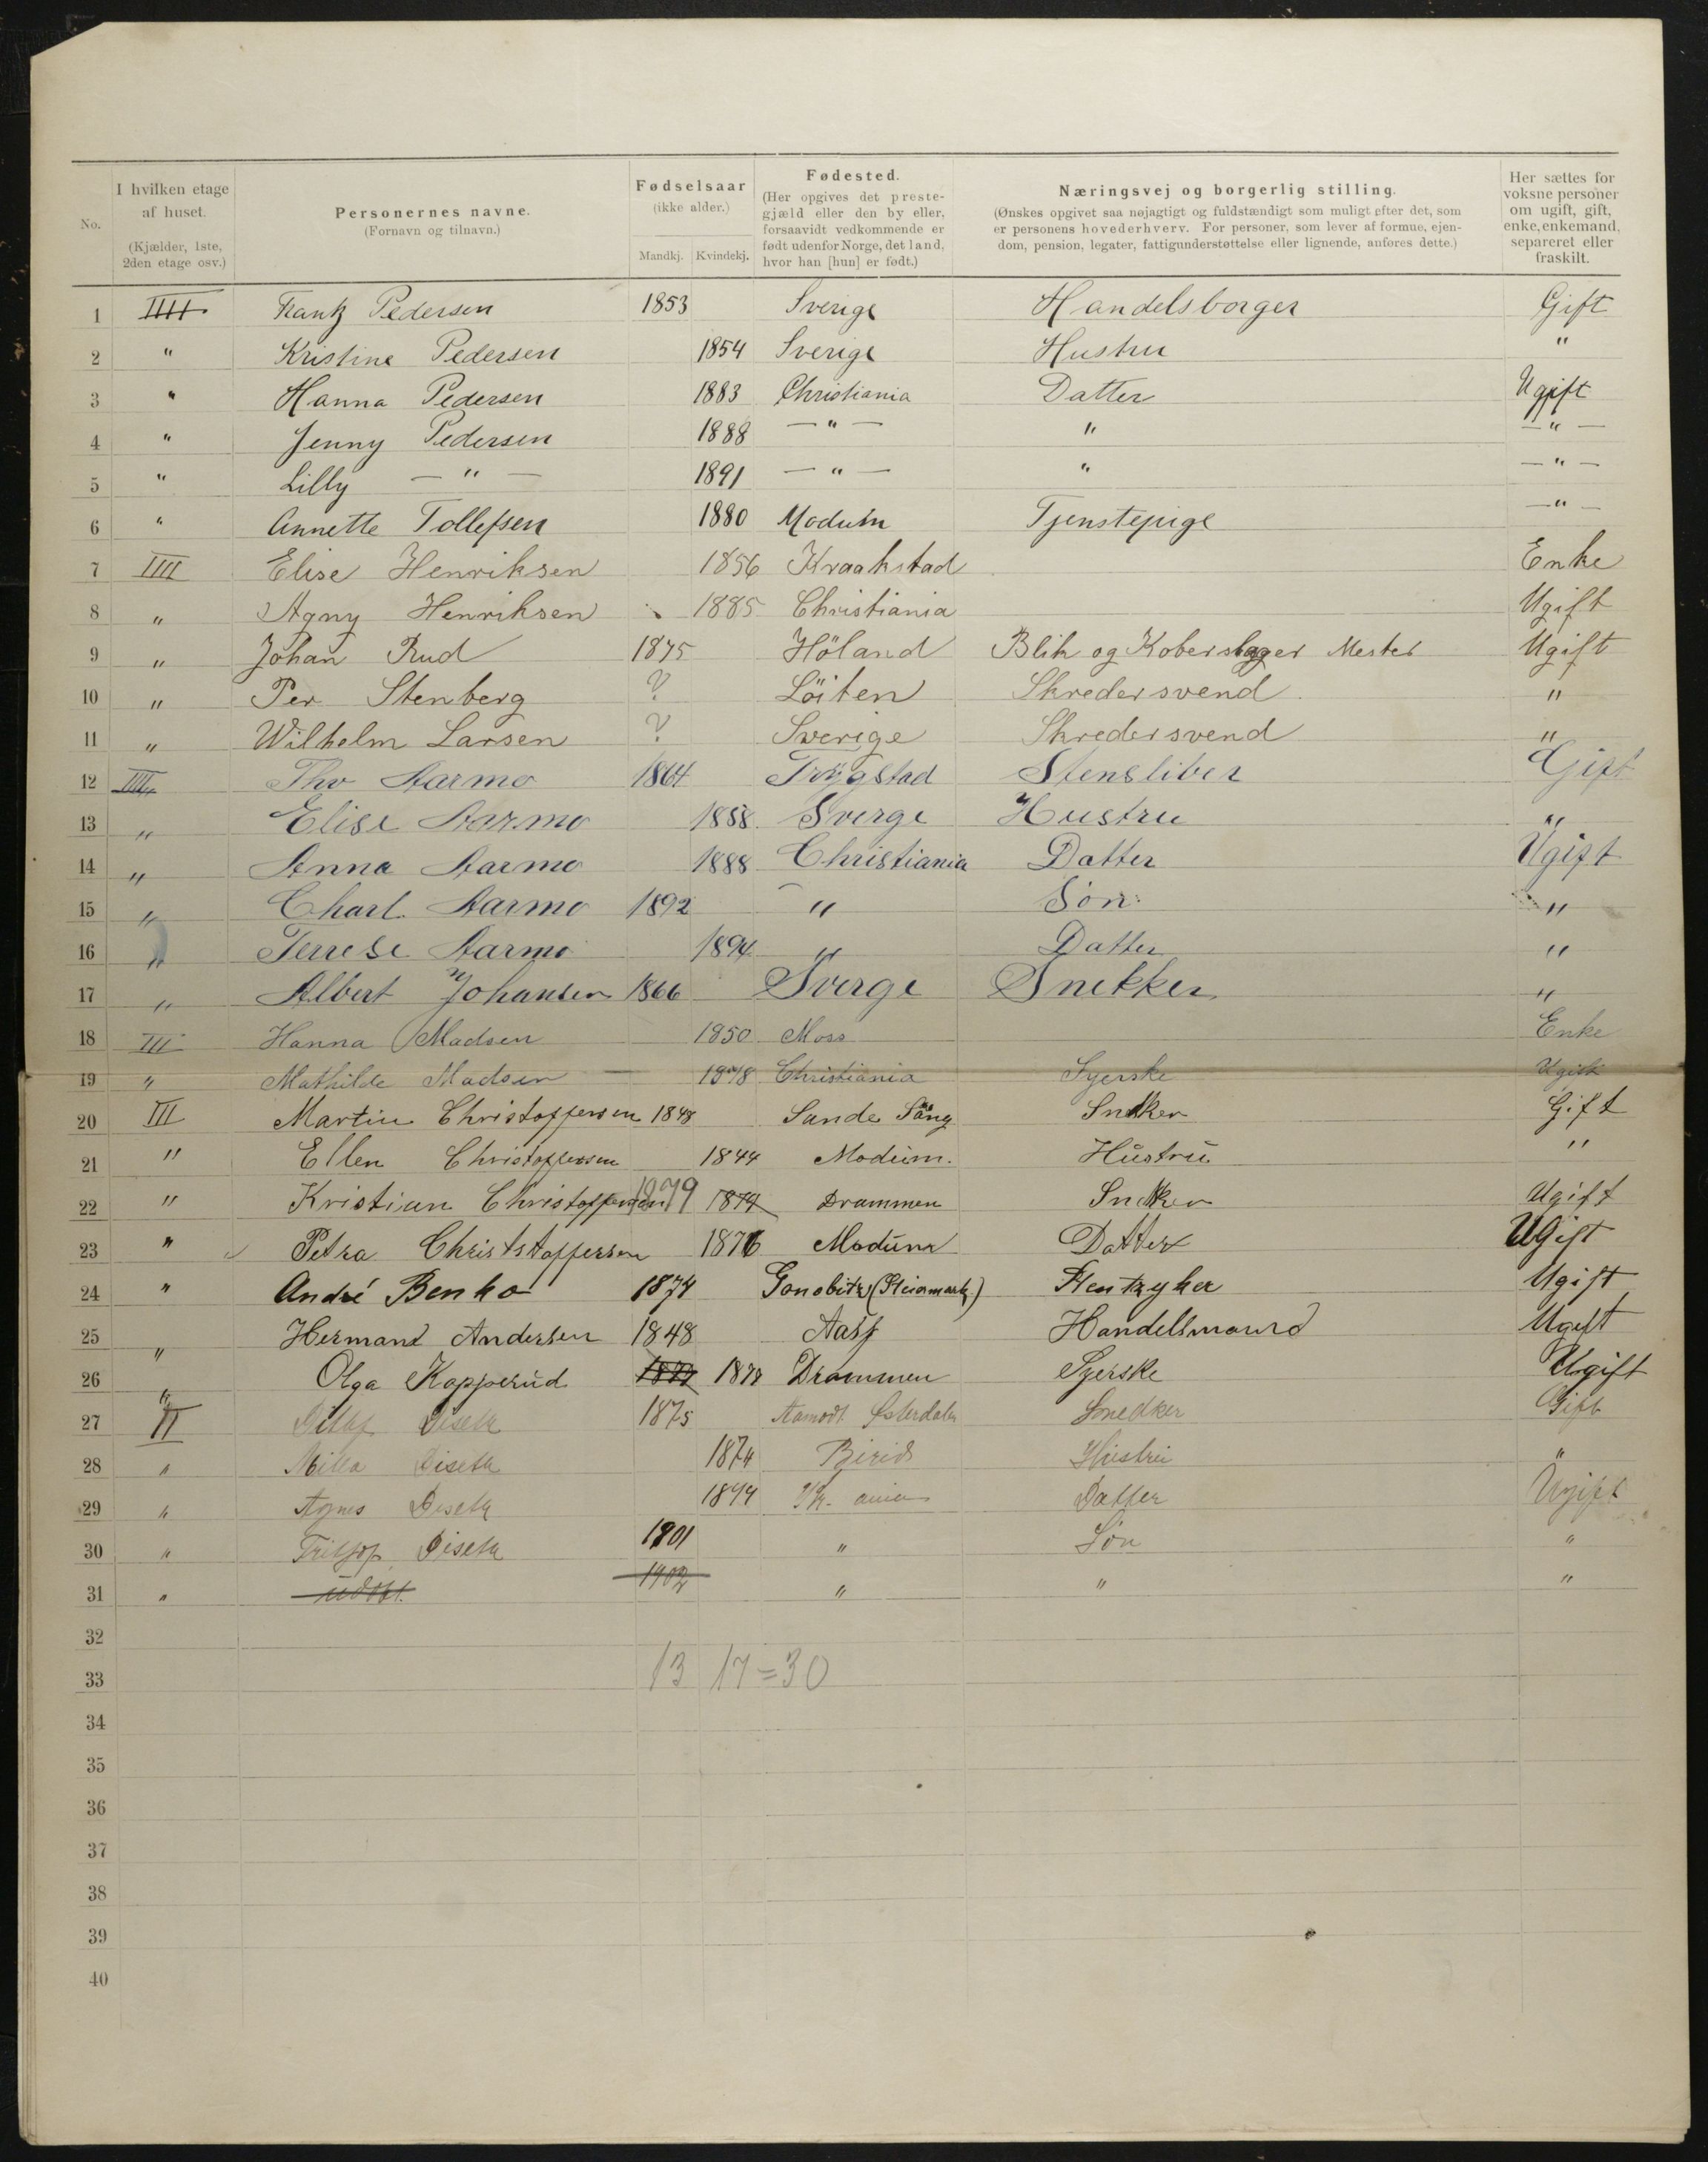 No.
I hvilken etage af huset. (Kjælder, 1ste, 2den etage osv.)
Personernes navne. (Fornavn og tilnavn.)
Fødselsaar (ikke alder.) Mandkj. Kvindekj.
Fødested. (Her opgives det prestegjæld eller den by eller, forsaavidt vedkommende er født udenfor Norge, det land, hvor han [hun] er født.)
Næringsvej og borgerlig stilling. (Ønskes opgivet saa nøjagtigt og fuldstændigt som muligt efter det, som er personens hovederhverv. For personer, som lever af formue, ejendom, pension, legater, fattigunderstøttelse eller lignende, anføres dette.)
Her sættes for voksne personer om ugift, gift, enke, enkemand, separeret eller fraskilt.
1 IIII Frantz Pedersen 1853 Sverige Handelsborger Gift
2 " Kristine Pedersen 1854 Sverige Hustru "
3 " Hanna Pedersen 1883 Christiania Datter Ugift
4 " Jenny Pedersen 1888 — " — " — " —
5 " Lilly — " — 1891 — " — " — " —
6 " Annette Tollefsen 1880 Modum Tjenstepige — " —
7 IIII Elise Henriksen 1856 Kraakstad Enke
8 " Agny Henriksen 1885 Christiania Ugift
9 " Johan Rud 1875 Höland Blik og Koberslager Mester Ugift
10 " Per Stenberg ? Löiten Skredersvend "
11 " Wilhelm Larsen ? Sverige Skredersvend "
12 IIII Tho Aarmo 1864 Trygstad Stensliber Gift
13 " Elise Aarmo 1858 Sverge Hustru "
14 " Anna Aarmo 1888 Christiania Datter Ugift
15 " Charl. Aarmo 1892 " Søn "
16 " Terrese Aarmo 1894 " Datter "
17 " Albert Johansen 1866 Sverge Snekker "
18 III Hanna Madsen 1850 Moss Enke
19 " Mathilde Madsen 1878 Christiania Syerske Ugift
20 III Martin Christoffersen 1848 Sande Snekker Gift
21 " Ellen Christoffersen 1844 Modum. Hustru "
22 " Kristian Christoffersen 1879 1879 Drammen Snekker Ugift
23 " Petra Christstoffersen 1876 Modum Datter Ugift
24 " André Benko 1874 Gonobitz (Steiermark.) Stentryker Ugift
25 " Hermand Andersen 1848 Aass Handelsmand Ugift
26 " Olga Kopperud 1878 Drammen Syerske Ugift
27 II Diseth 1875 Aamodt Østerdalen Snedker Gift
28 " Diseth 1874 Birid Hustru "
29 " Agnes Diseth 1899 Kr. ania Datter Ugift
30 " Fritjof Diseth 1901 " Søn "
31 " udøbt. 1902 " " "
32
33 13 17 = 30
34
35
36
37
38
39
40